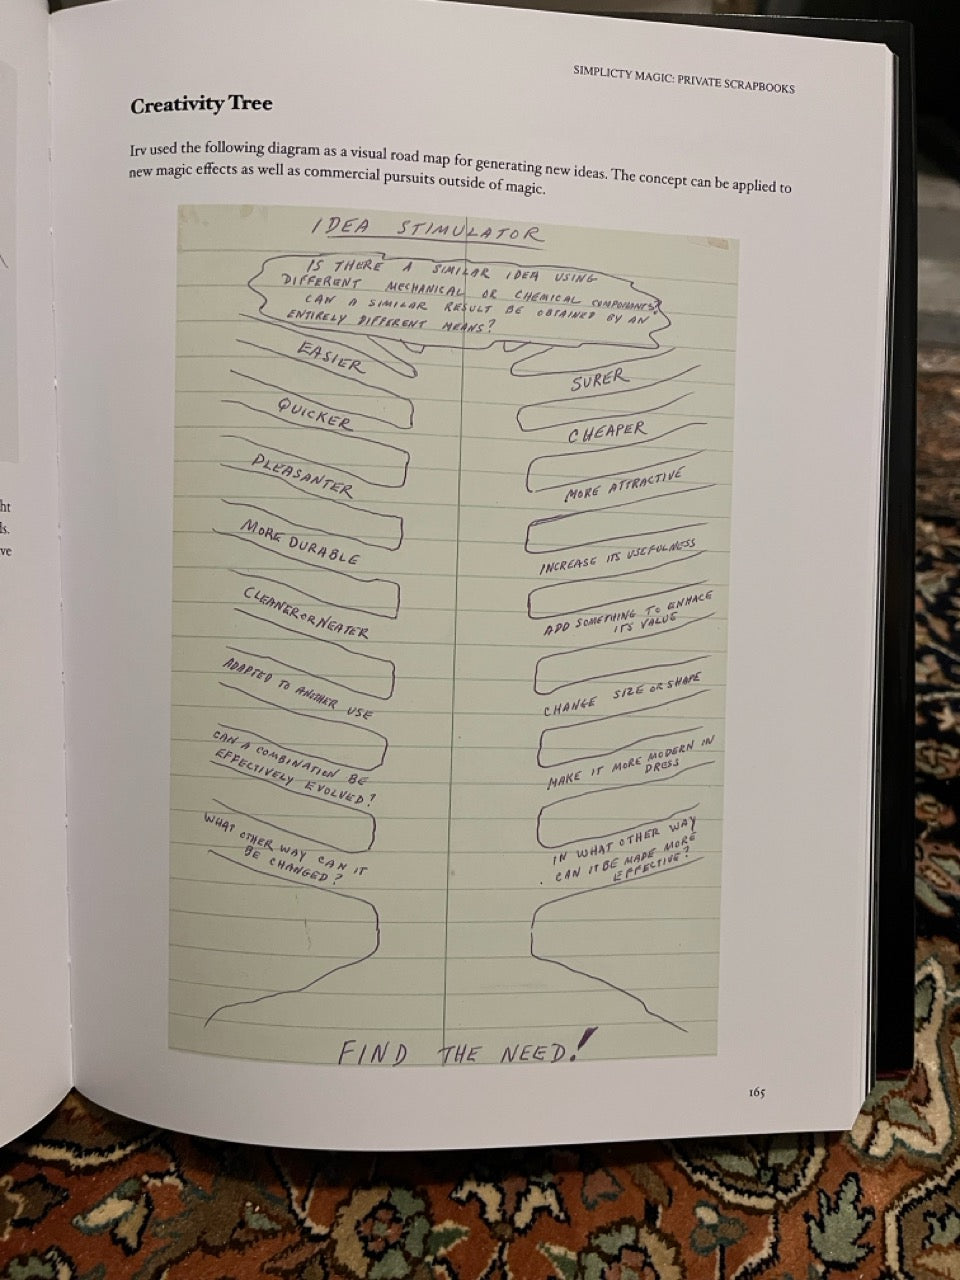 SIMPLICTY MAGIC: PRIVATE SCRAPBOOKS
Creativity Tree
Irv used the following diagram as a visual road map for generating new ideas. The concept can be applied to
new magic effects as well as commercial pursuits outside of magic.
IDEA STIMULATOR
IS THERE A SIMILAR IDEA USING
DIFFERENT MECHANICAL OR CHEMICAL COMPONANTS?
CAN A SIMILAR RESULT BE OBTAINED BY AN
ENTIRELY DIFFERENT MEANS?
EASIER
QUICKER
PLEASANTER
MORE DURABLE
CLEANER OR NEATER
ADAPTED TO ANOTHER USE
CAN A COMBINATION BE
EFFECTIVELY EVOLVED?
WHAT OTHER WAY CAN IT
BE CHANGED?
SURER
CHEAPER
MORE ATTRACTIVE
INCREASE ITS USEFULNESS
ADD SOMETHING TO ENHACE
ITS VALUE
CHANGE SIZE OR SHAPE
MAKE IT MORE MODERN IN
DRESS
IN WHAT OTHER WAY
CAN IT BE MADE MORE
EFFECTIVE?
FIND THE NEED!
165
ht
ls.
ve